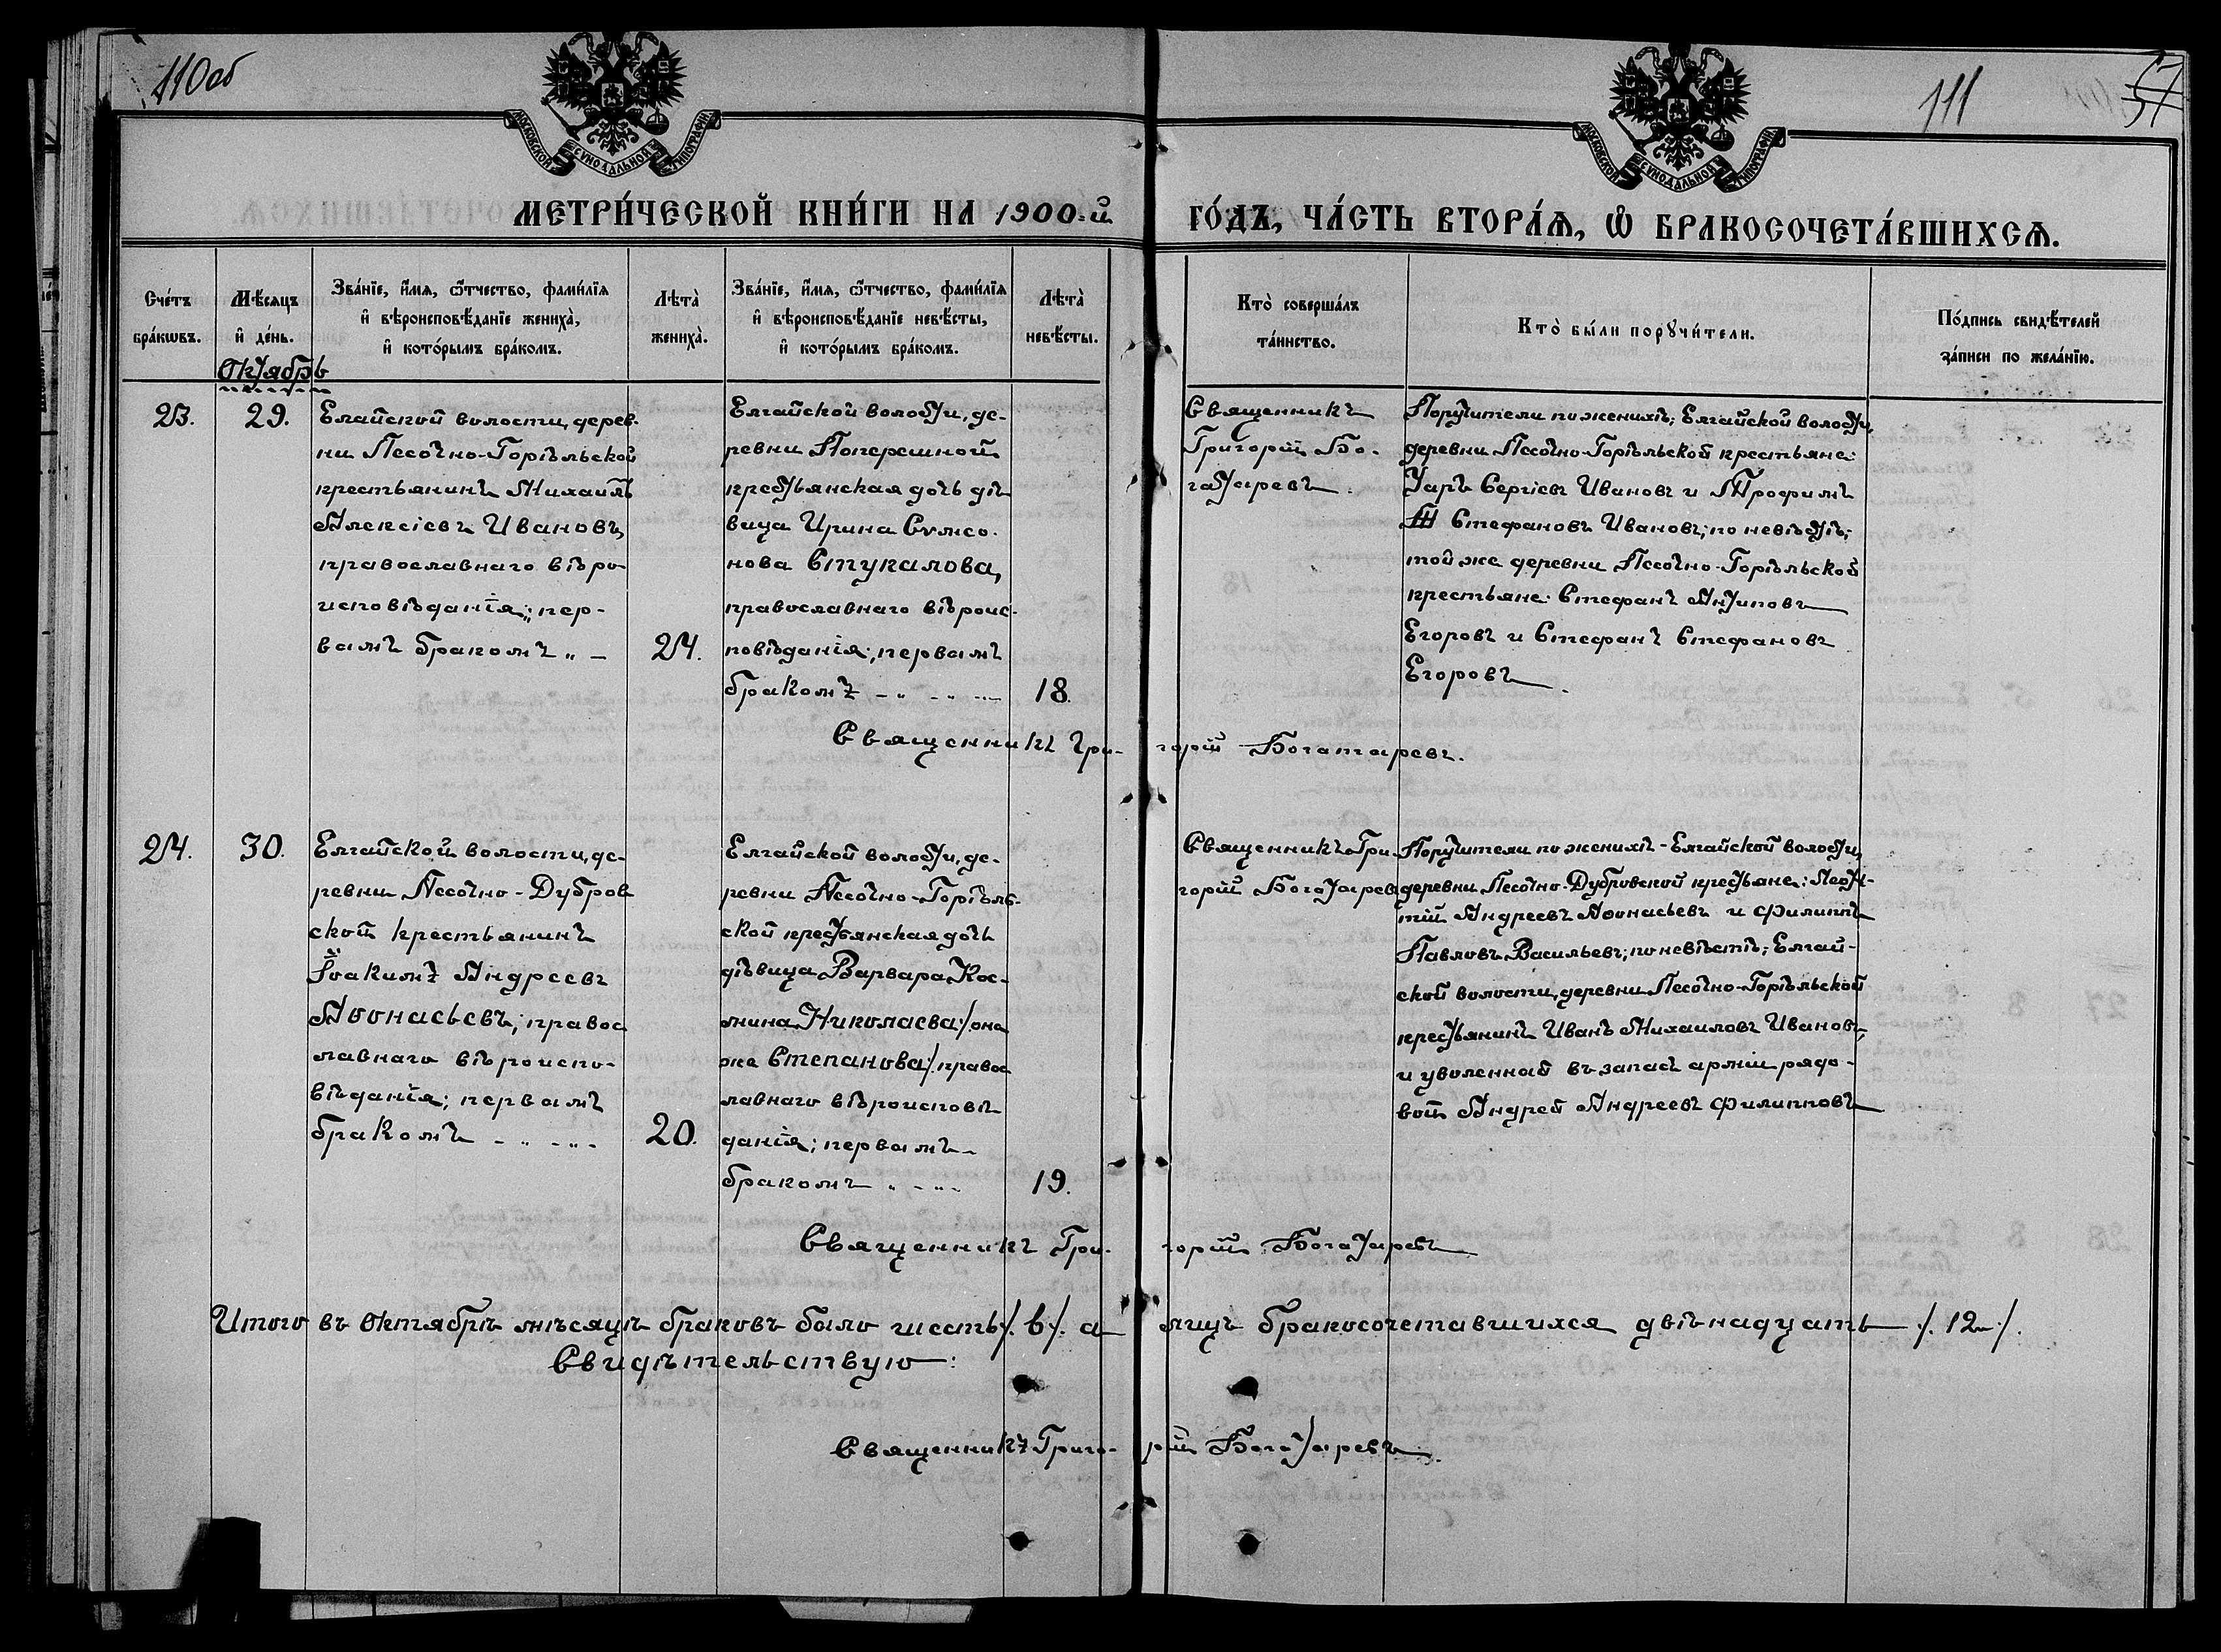 110 об
111
57
МОСКОВСКОЙ СѴНОДАЛЬНОЙ ТИПОГРАФІИ
МОСКОВСКОЙ СѴНОДАЛЬНОЙ ТИПОГРАФІИ
МЕТРИ́ЧЕСКОЙ КНИ́ГИ НА 1900-й ГО́ДЪ, ЧА́СТЬ ВТОРА́Ѧ, Ѽ БРАКОСОЧЕТА́ВШИХСѦ.
Сче́тъ
бра́кѡвъ.
Мѣ́сяцъ
и҆ де́нь.
Зва́нїе, и҆́мя, ѻ҆́тчество, фами́лїя
и҆ вѣроисповѣ́данїе жениха̀,
и҆ кото́рымъ бра́комъ.
Лѣта̀
жениха̀.
Зва́нїе, и҆́мя, ѻ҆́тчество, фами́лїя
и҆ вѣроисповѣ́данїе невѣ́сты,
и҆ кото́рымъ бра́комъ.
Лѣта̀
невѣ́сты.
Кто̀ соверша́лъ
та́инство.
Кто̀ бы́ли порꙋчи́тели.
По́дпись свидѣ́телей
за́писи по жела́нїю.
Октябрь
23.
29.
Елгайской волости, дерев-
ни Песочно-Горѣльской
крестьянинъ Михаилъ
Алексіевъ Ивановъ,
православнаго вѣро-
исповѣданія; пер-
вымъ бракомъ
24.
Елгайской волости, де-
ревни Поперешной
крестьянская дочь дѣ-
вица Ирина Сѵмео-
нова Стукалова,
православнаго вѣроис-
повѣданія; первымъ
бракомъ
18.
Священникъ
Григорій Бо-
гатыревъ.
Поручители по женихѣ; Елгайской волости,
деревни Песочно-Горѣльской крестьяне:
Уаръ Сергіевъ Ивановъ и Трофимъ
Стефановъ Ивановъ; по невѣстѣ;
той же деревни Песочно-Горѣльской
крестьяне: Стефанъ Антиповъ
Егоровъ и Стефанъ Стефановъ
Егоровъ.
Священникъ Григорій Богатыревъ.
24.
30.
Елгайской волости, де-
ревни Песочно-Дубров
ской крестьянинъ
Іоакимъ Андреевъ
Аѳонасьевъ; правос
лавнаго вѣроиспо-
вѣданія; первымъ
бракомъ
20.
Елгайской волости, де-
ревни Песочно-Горѣль-
ской крестьянская дочь
дѣвица Варвара Кос-
мина Николаева /:она
же Степанова:/ правос
лавнаго вѣроисповѣ
данія; первымъ
бракомъ
19.
Священникъ Гри-
горій Богатыревъ
Поручители по женихѣ - Елгайской волости,
деревни Песочно-Дубровской крестьяне: Леон-
тій Андреевъ Аѳонасьевъ и Филиппъ
Павловъ Васильевъ; по невѣстѣ; Елгай-
ской волости, деревни Песочно-Горѣльской
крестьянинъ Иванъ Михаиловъ Ивановъ,
и уволенный въ запасъ арміи рядо-
вой Андрей Андреевъ Филипповъ
Священникъ Григорій Богатыревъ
Итого въ Октябрѣ мѣсяцѣ браковъ было шесть /:6:/ а лицъ бракосочетавшихся двѣнадцать /:12:/.
Свидѣтельствую:
Священникъ Григорій Богатыревъ.